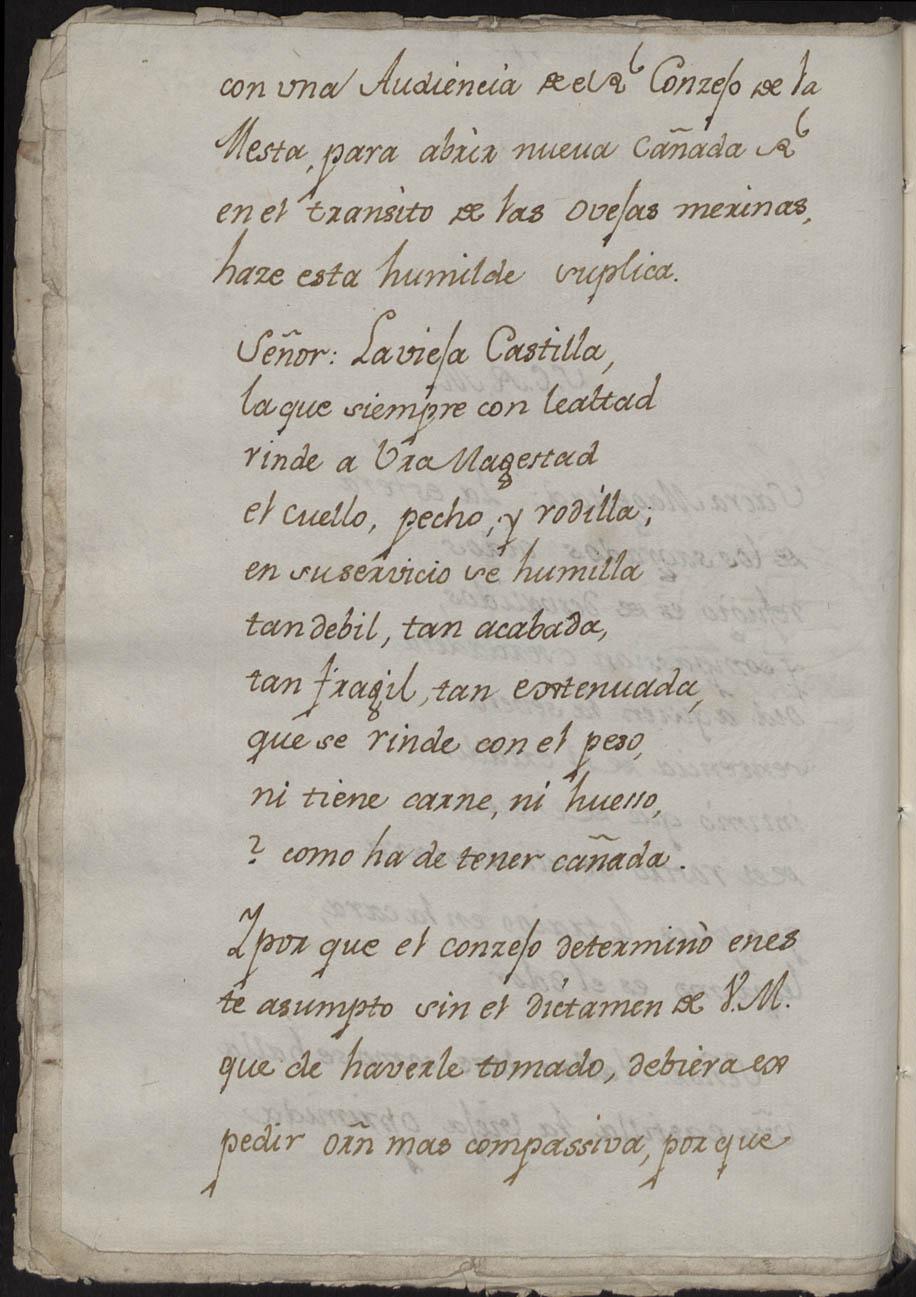 con vna Audiencia de el Rl Conzejo de la
Mesta, para abrir nueva Cañada Rl
en el transito de las Ovejas merinas,
haze esta humilde suplica.
Señor: La vieja Castilla,
la que siempre con lealtad
rinde a Vra Magestad
el cuello, pecho, y rodilla;
en su servicio se humilla
tan debil, tan acabada,
tan fragil, tan extenuada,
que se rinde con el peso,
ni tiene carne, ni huesso,
? como ha de tener cañada.
Y por que el conzejo determinò en es
te asumpto sin el dictamen de V.M.
que de haverle tomado, debiera ex
pedir orñ mas compassiva, por que